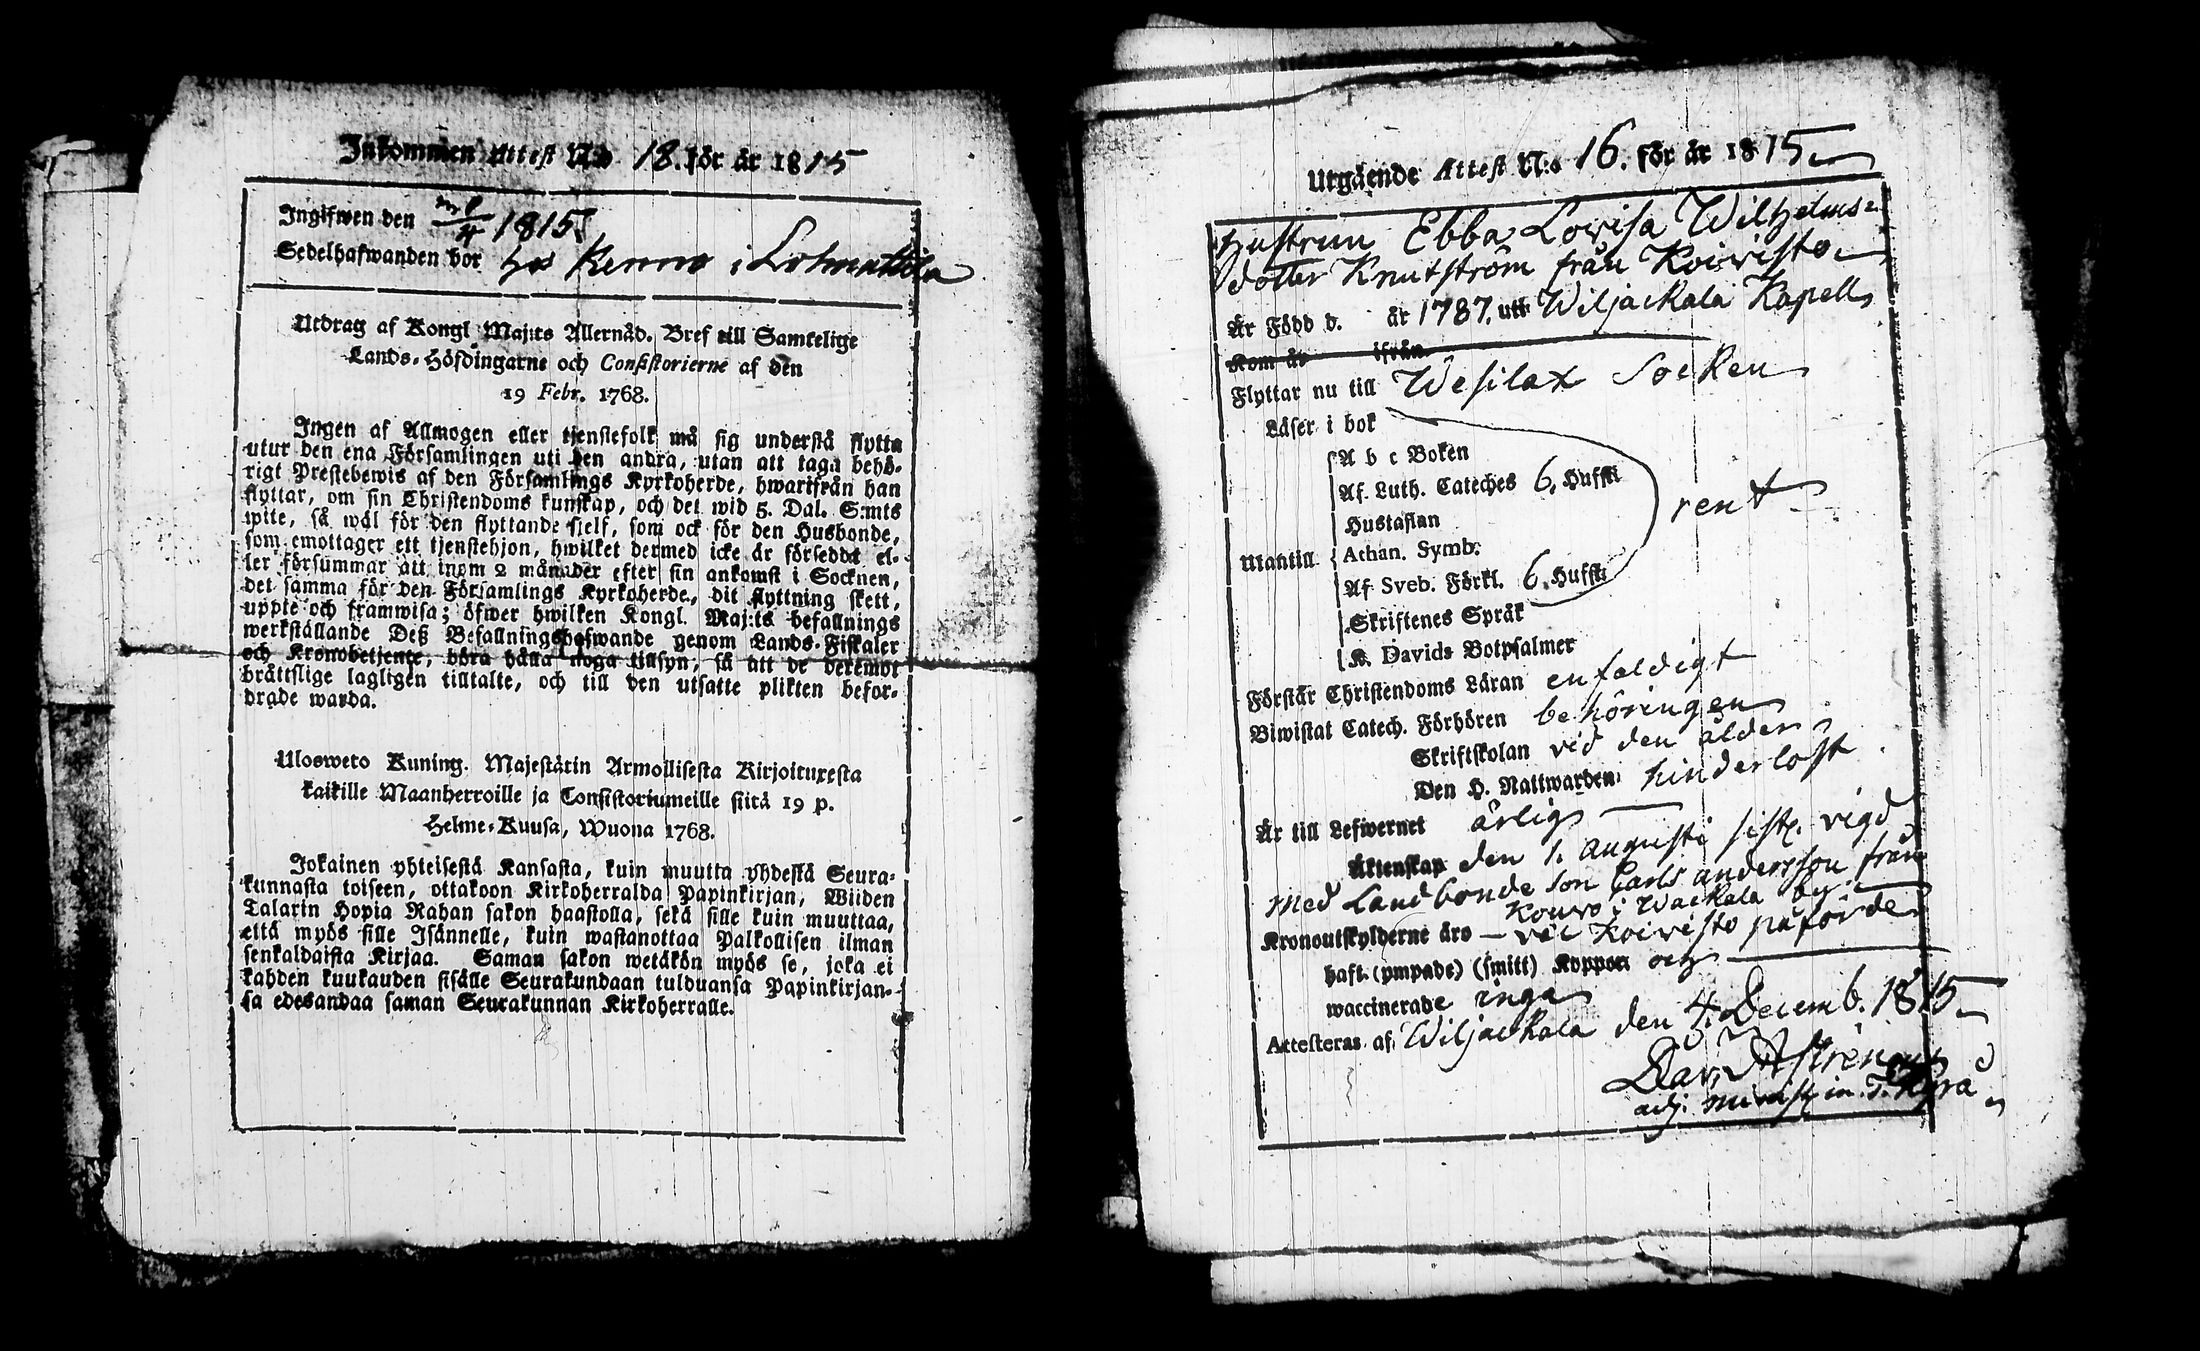 Inkommen Attest N:o 18. för år 1815
Ingifwen den 1815
Sedelhafwanden bor hos i
Utdrag af Kongl Maj:ts Allernåd. Bref till Samtelige
Lands-Höfdingarne och Consistorierne af den
19 Febr. 1768.
Ingen af Allmogen eller tjenstefolk må sig understå flytta
utur den ena Församlingen uti den andra, utan att taga behö-
rigt Prestebewis af den Församlings Kyrkoherde, hwarifrån han
flyttar, om sin Christendoms kunskap, och det wid 5. Dal. S:mts
wite, så wäl för den flyttande sjelf, som ock för den Husbonde,
som emottager ett tjenstehjon, hwilket dermed icke är förseddt el-
ler försummar att inom 2 månader efter sin ankomst i Socknen,
det samma för den Församlings Kyrkoherde, dit flyttning skett,
uppte och framwisa; öfwer hwilken Kongl. Maj:ts befallnings
werkställande Deß Befallningshafwande genom Lands-Fiskaler
och Kronobetjente, böra hålla noga tillsyn, så att de deremot
bråttslige lagligen tilltalte, och till den utsatte plikten befor-
drade warda.
Ulosweto Kuning. Majestätin Armollisesta Kirjoituxesta
kaikille Maanherroille ja Consistoriumeille siitä 19 p.
Helme-Kuusa, Wuona 1768.
Jokainen yhteisestä Kansasta, kuin muutta yhdestä Seura-
kunnasta toiseen, ottakoon Kirkoherralda Papinkirjan, Wiiden
Talarin Hopia Rahan sakon haastolla, sekä sille kuin muuttaa,
että myös sille Isännelle, kuin wastanottaa Palkollisen ilman
senkaldaista Kirjaa. Saman sakon wetäkön myös se, joka ei
kahden kuukauden sisälle Seurakundaan tulduansa Papinkirjan-
sa edesandaa saman Seurakunnan Kirkoherralle.
Utgående Attest N:o 16. För år 1815
Hustrun Ebba Lovisa Wilhelms-
dotter Knutström från Koivisto
Är Född d. år 1787. uti Wiljackala Kapell
Kom år ifrån
Flyttar nu till Wesilax Socken
Läser i bok
A b c Boken
Af Luth. Cateches 6. Hufst:
Hustaflan
Utantill Athan. Symb. rent
Af Sveb. Förkl. 6. Hufst:
Skriftenes Språk
K. Davids Botpsalmer
Förstår Christendoms Läran enfaldigt
Biwistat Catech. Förhören behöringen
Skriftskolan vid den ålder
Den H. Nattwarden hinderlöst
Är till Lefwernet ärlig
Äktenskap den 1. augusti sistl. vigd
med Landbonde son Carls andersson från
Kouvo i Wackala by.
Kronoutskylderne äro vid Koivisto påförde
haft (ympade) (smitt) Koppor och
waccinerade inga
Attesteras af Wiljackala den 4. Decemb. 1815